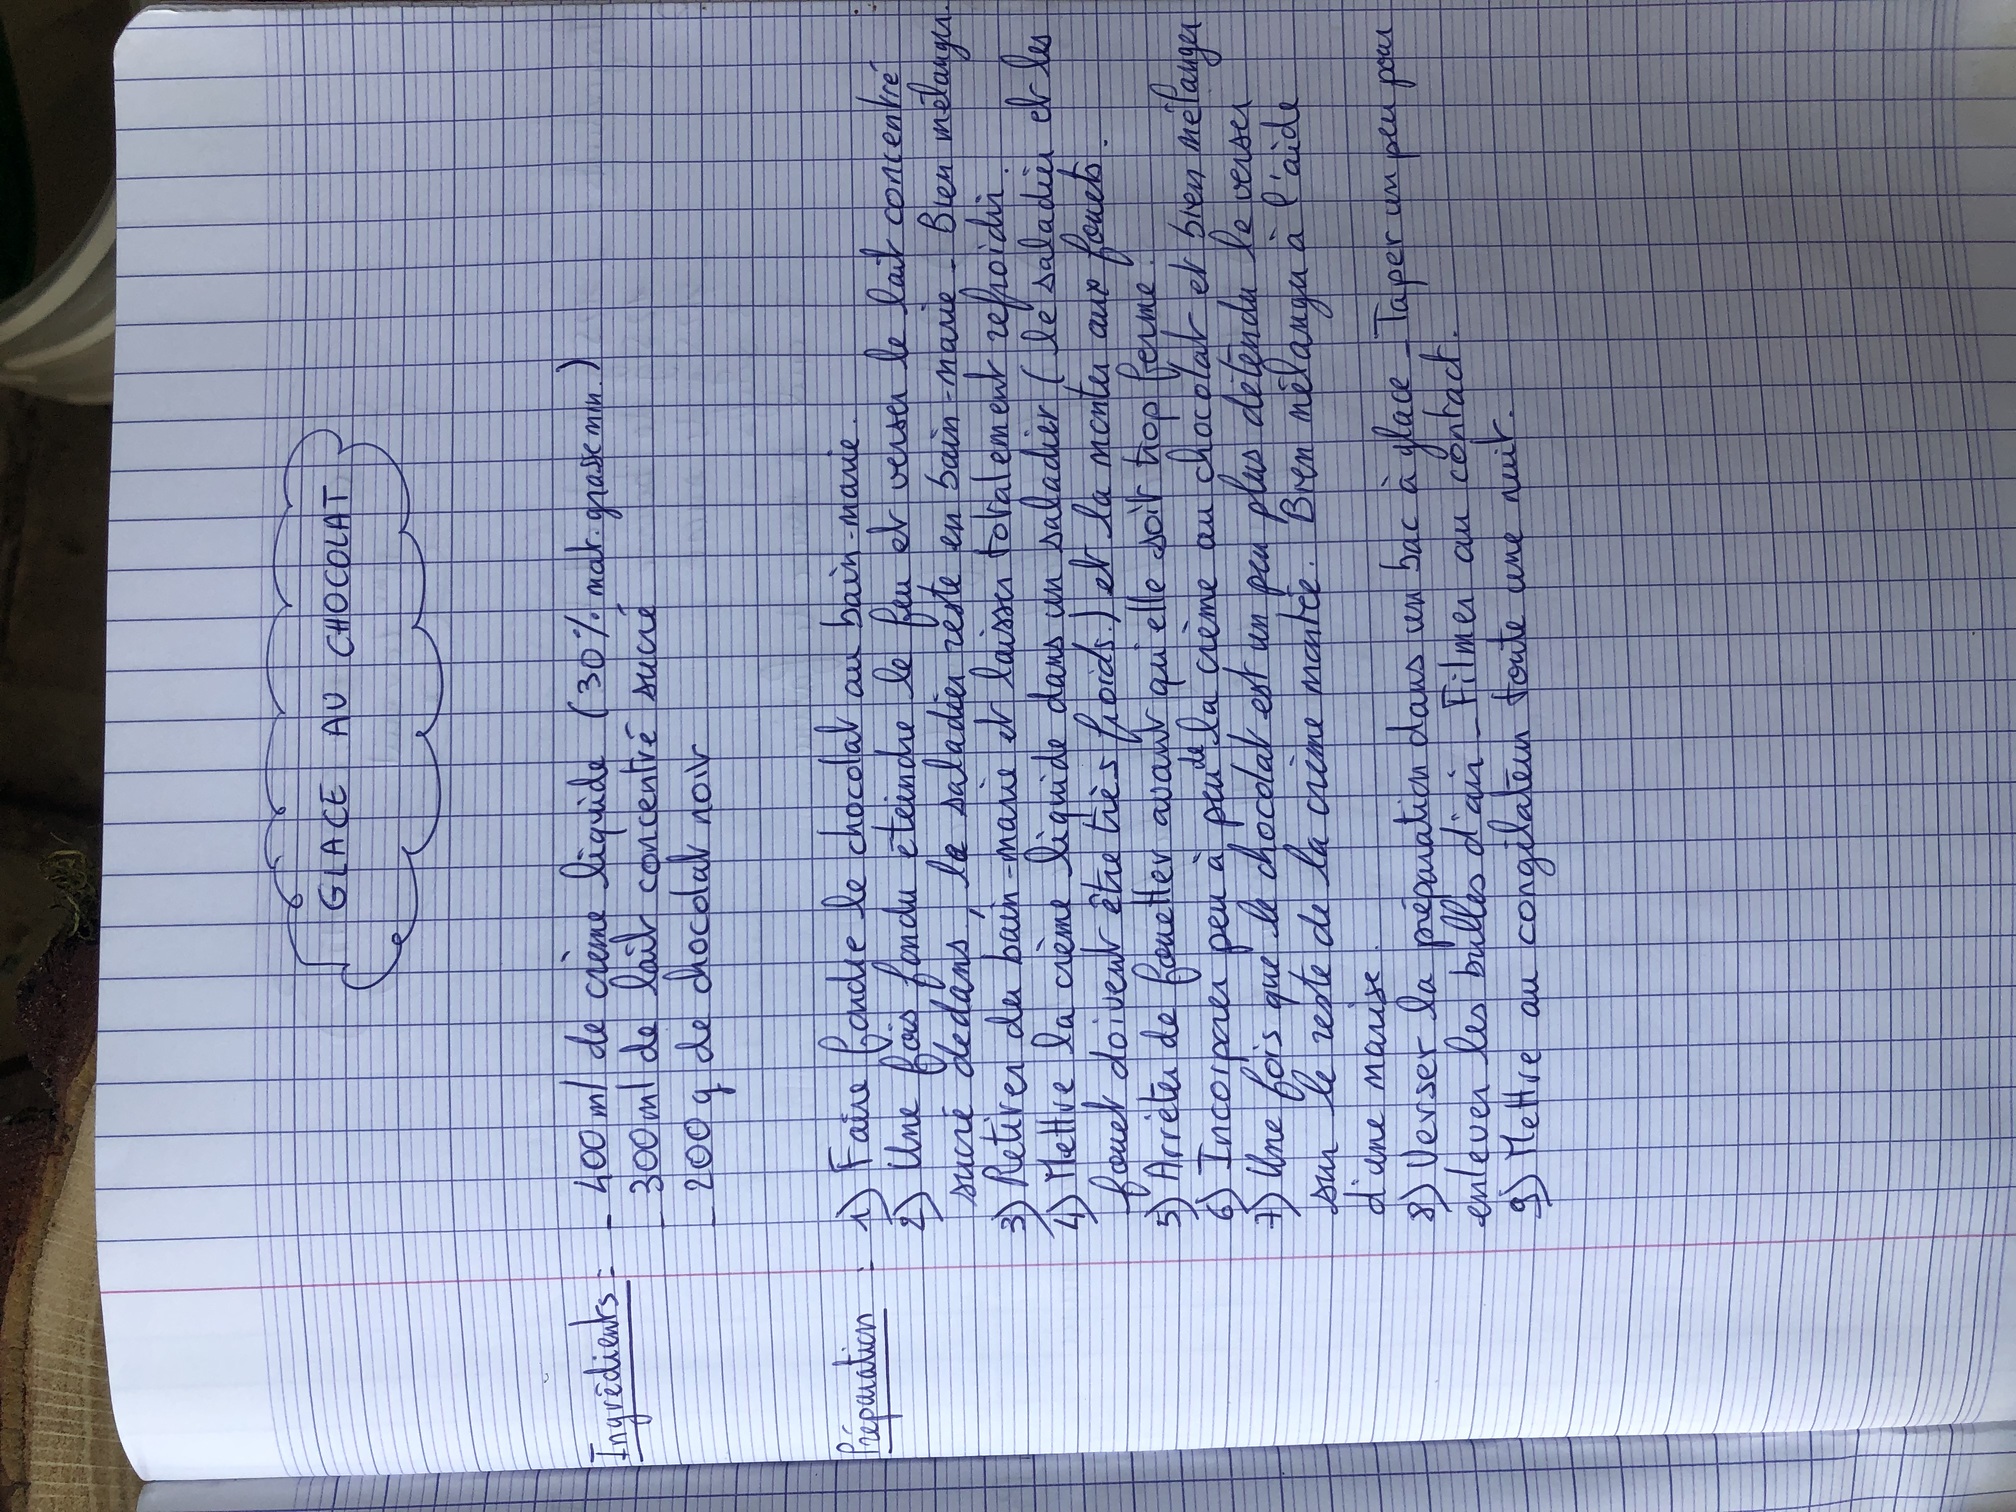 GLACE AU CHOCOLAT
Ingrédients : - 400 ml de crème liquide (30% mat. grasse min.)
- 300 ml de lait concentré sucré
- 200 g de chocolat noir
Préparation : 1) Faire fondre le chocolat au bain-marie.
2) Une fois fondu éteindre le feu et verser le lait concentré
sucré dedans, le saladier reste en bain-marie - Bien mélanger.
3) Retirer du bain-marie et laisser totalement refroidir.
4) Mettre la crème liquide dans un saladier (le saladier et les
fouet doivent être très froids.) et la monter aux fouets.
5) Arrêter de fouetter avant qu'elle soit trop ferme.
6) Incorporer peu à peu de la crème au chocolat et bien mélanger
7) Une fois que le chocolat est un peu plus détendu le verser
sur le reste de la crème montée. Bien mélanger à l'aide
d'une marise.
8) Verser la préparation dans un bac à glace - Taper un peu pour
enlever les bulles d'air - Filmer au contact.
9) Mettre au congélateur toute une nuit.